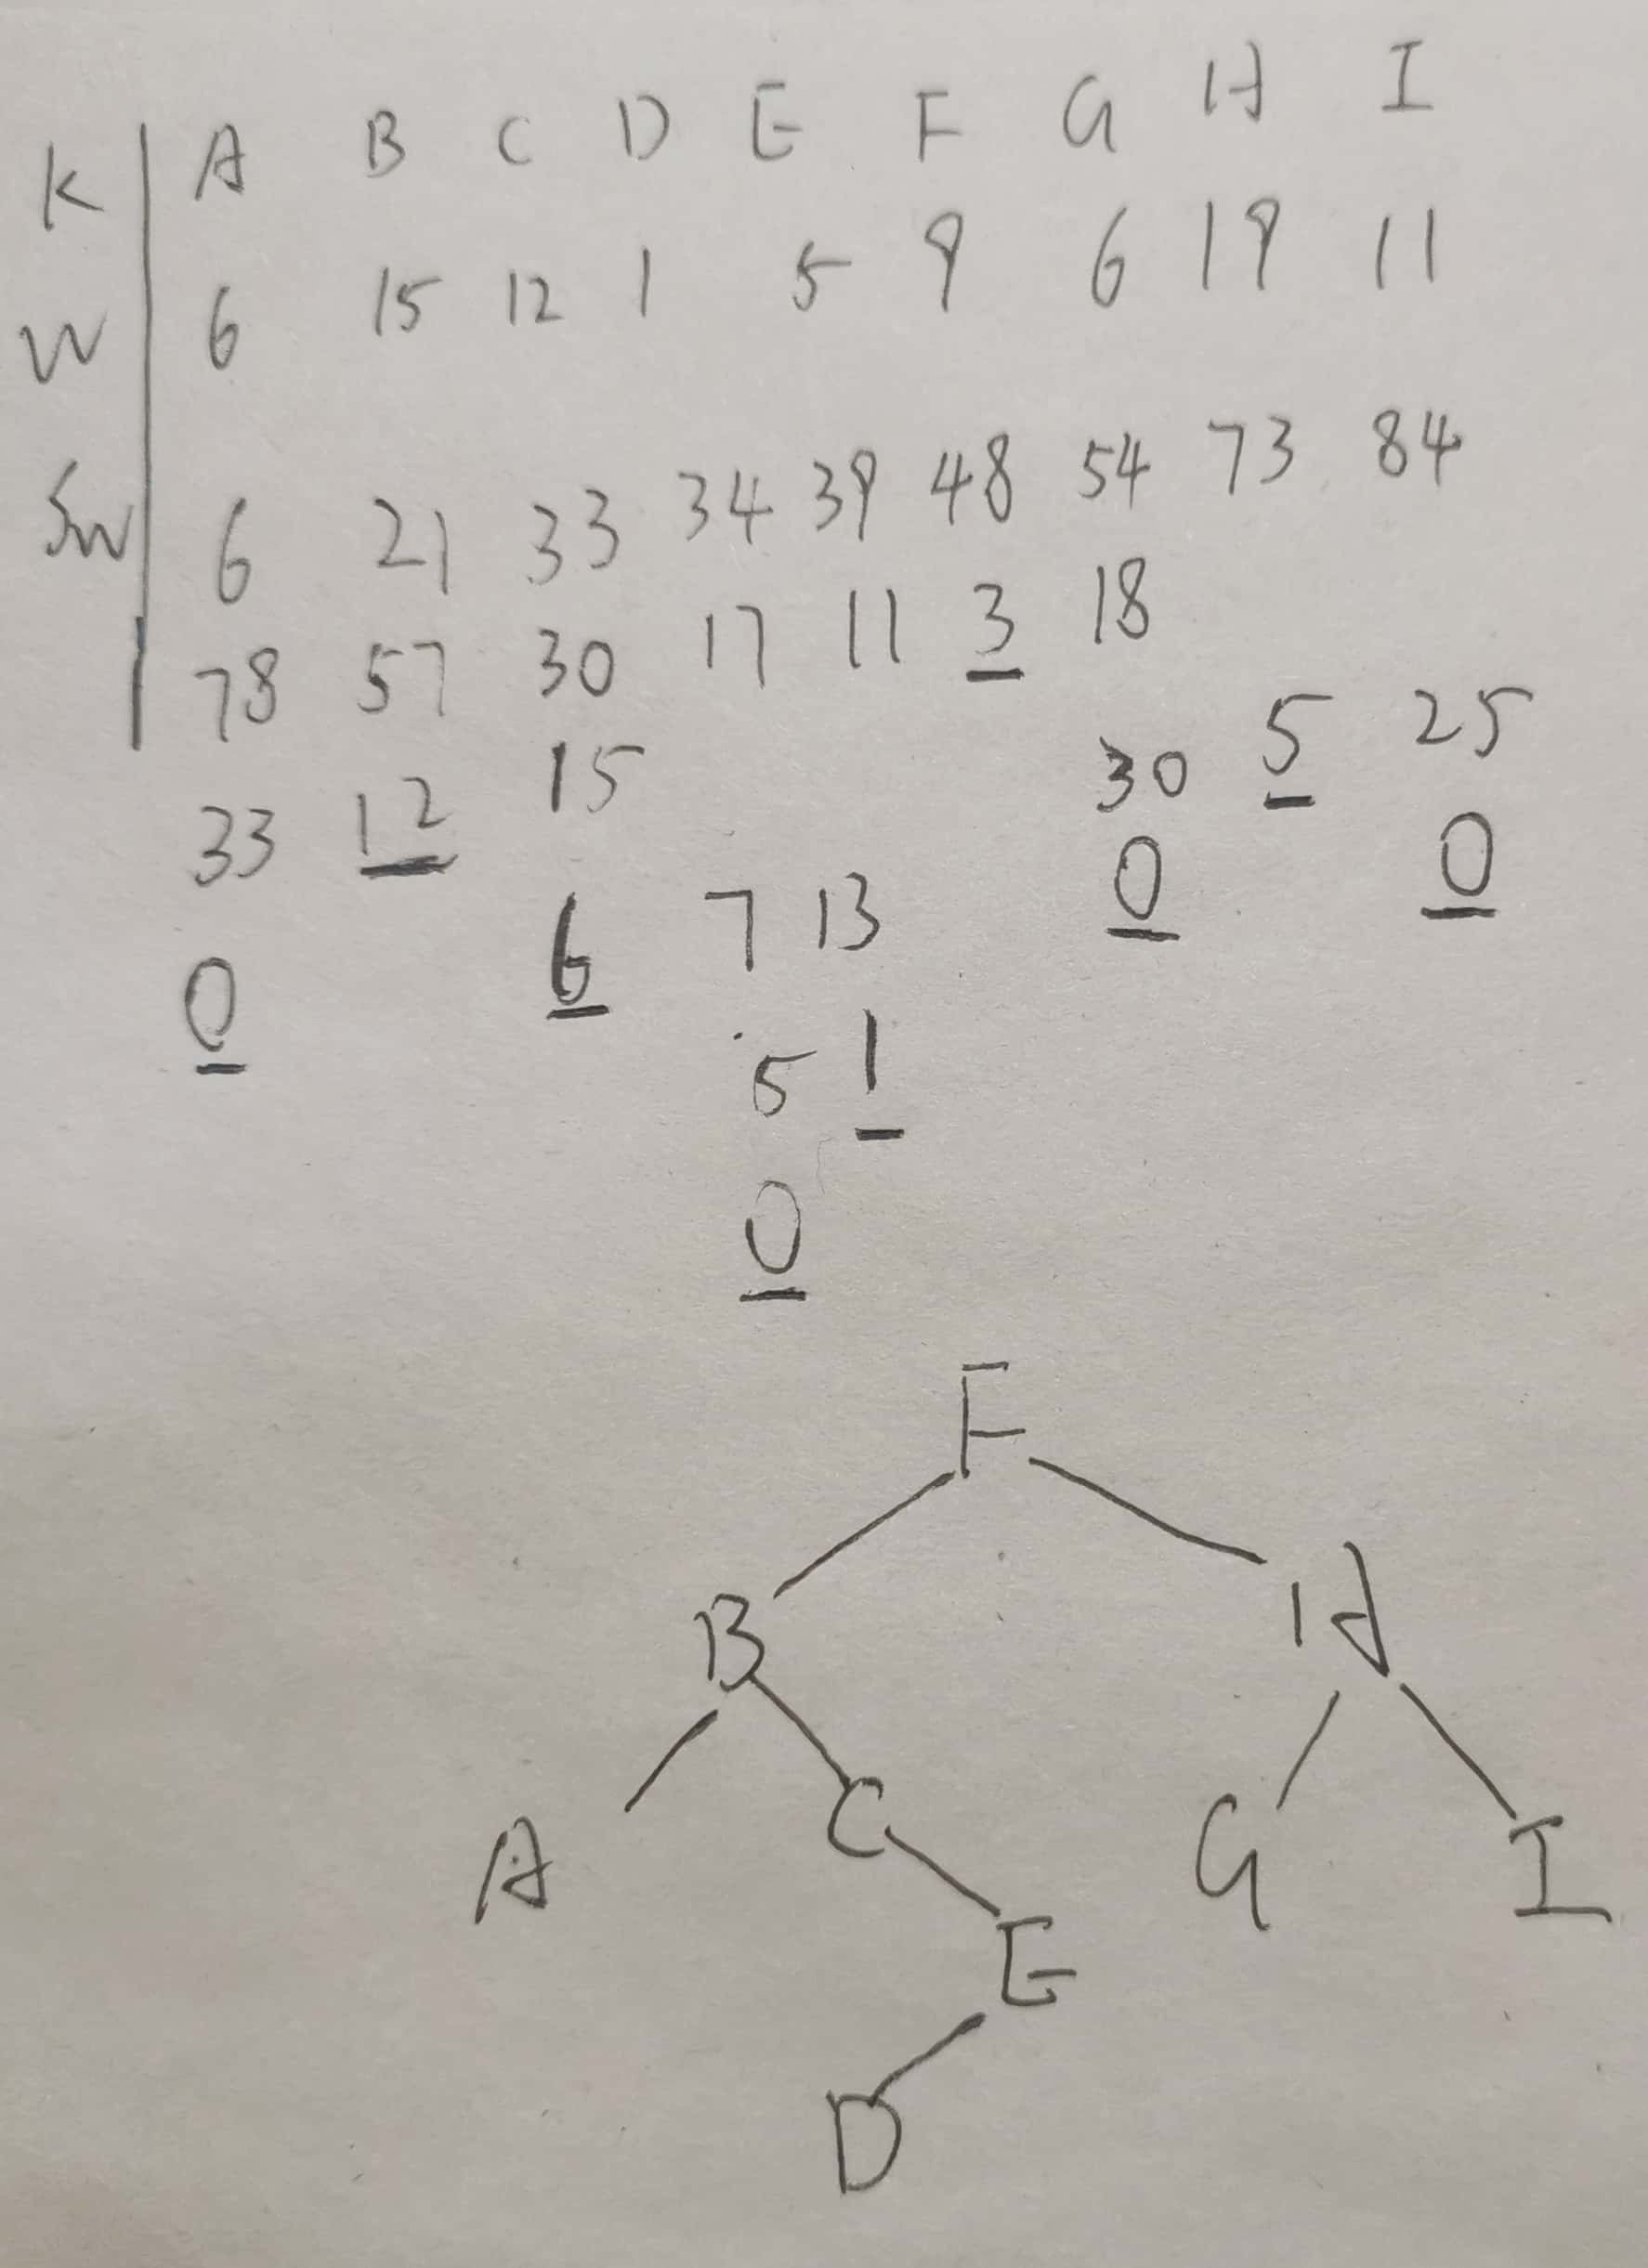 K A B C D E F G H I
W 6 15 12 1 5 9 6 19 11
SW 6 21 33 34 39 48 54 73 84
78 57 30 17 11 3 18
33 12 15 30 5 25
0 6 7 13 0 0
5 1
0
F
B H
A C G I
E
D